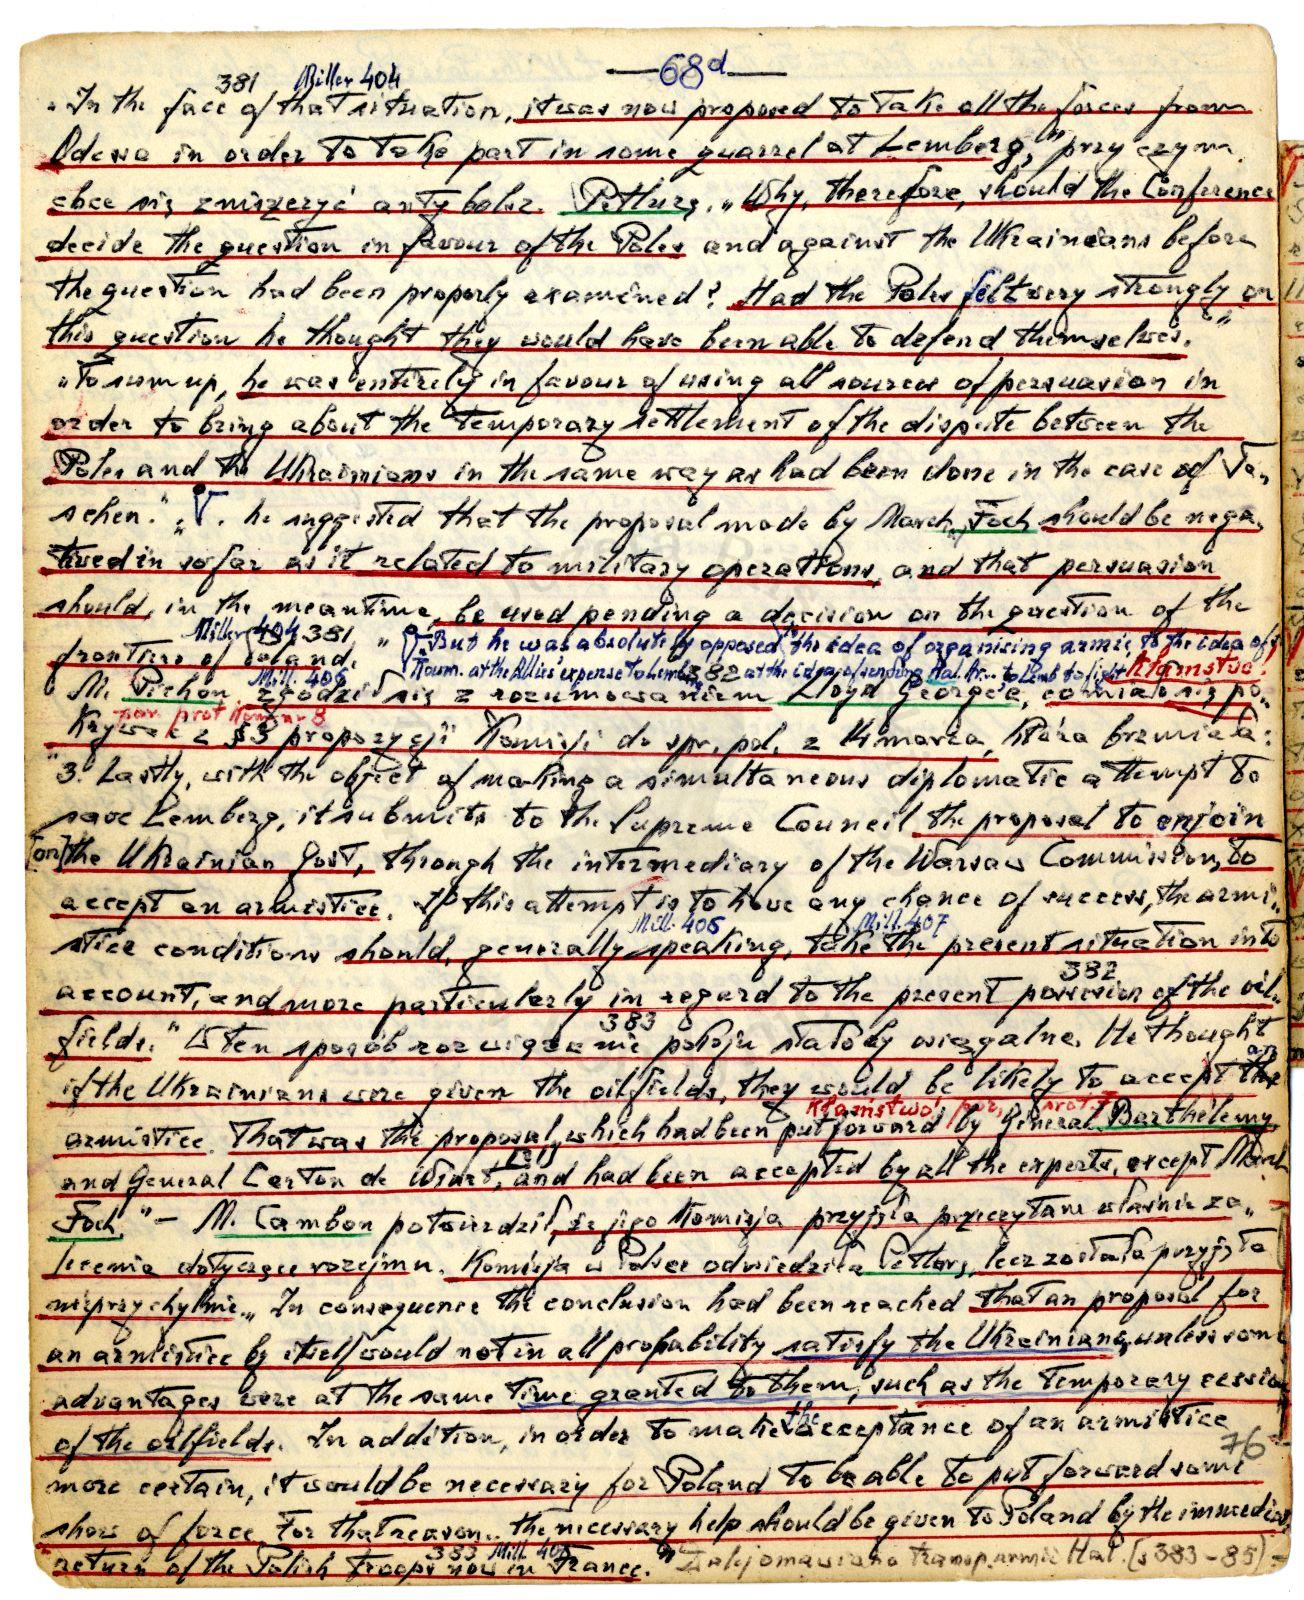 — 68d —
381 Miller 404
„In the face of that situation, it was now proposed to take all the forces from
Odessa in order to take part in some quarrel at Lemberg," przy czym
chce się zniszczyć antybolsz. Petlurę. „Why, therefore, should the Conference
decide the question in favour of the Poles and against the Ukrainians before
the question had been properly examined? Had the Poles felt very strongly on
this question he thought they would have been able to defend themselves."
„To sum up, he was entirely in favour of using all sources of persuasion in
order to bring about the temporary settlement of the dispute between the
Poles and the Ukrainians in the same way as had been done in the case of Te-
schen." „ he suggested that the proposal made by Marsh. Foch should be nega-
tived in so far as it related to military operations, and that persuasion
should, in the meantime, be used pending a decision on the question of the
Miller 404 381 „But he was absolutely opposed to the idea of organising armies, to the idea of
frontiers of Poland.
Roum. at the Allies' expense to Lemb. 382 at the idea of sending Hal. Ar. to Lemb to fight Kłamstwo!
Mill. 406
M. Pichon zgodził się z rozumowaniem Lloyd George'a, co miało się po-
por. prot Kom nr 8
krywać z §3 propozycji Komisji do spr. pol. z 14 marca, która brzmiała:
"3. Lastly, with the object of making a simultaneous diplomatic attempt to
save Lemberg, it submits to the Supreme Council the proposal to enjoin
[on] the Ukrainian Govt, through the intermediary of the Warsaw Commission, to
accept an armistice. If this attempt is to have any chance of success, the armi-
Mill. 406 Mill. 407
stice conditions should, generally speaking, take the present situation into
382
account, and more particularly in regard to the present possession of the oil-
383
fields." W ten sposób rozwiązanie pokoju stałoby wiązalne. He thought
if the Ukrainians were given the oilfields, they would be likely to accept an
Kłamstwo! por. prot. 7
armistice. That was the proposal, which had been put forward by General Barthélemy
and General Carton de Wiart, and had been accepted by all the experts, except Marsh
Foch." — M. Cambon potwierdził, że jego Komisja przyjęła przeczytane właśnie za-
lecenia dotyczące rozejmu. Komisja w Polsce odwiedziła Petlurę, lecz została przyjęta
nieprzychylnie. „In consequence the conclusion had been reached that an proposal for
an armistice by itself would not in all probability satisfy the Ukrainians, unless some
advantages were at the same time granted to them, such as the temporary cession
of the oilfields. In addition, in order to make the acceptance of an armistice
76
more certain, it would be necessary for Poland to be able to put forward some
show of force. For that reason, the necessary help should be given to Poland by the immediate
383 Mill.
return of the Polish troops now in France." Dalej omawiano transp. armii Hal. (s 383–85) –